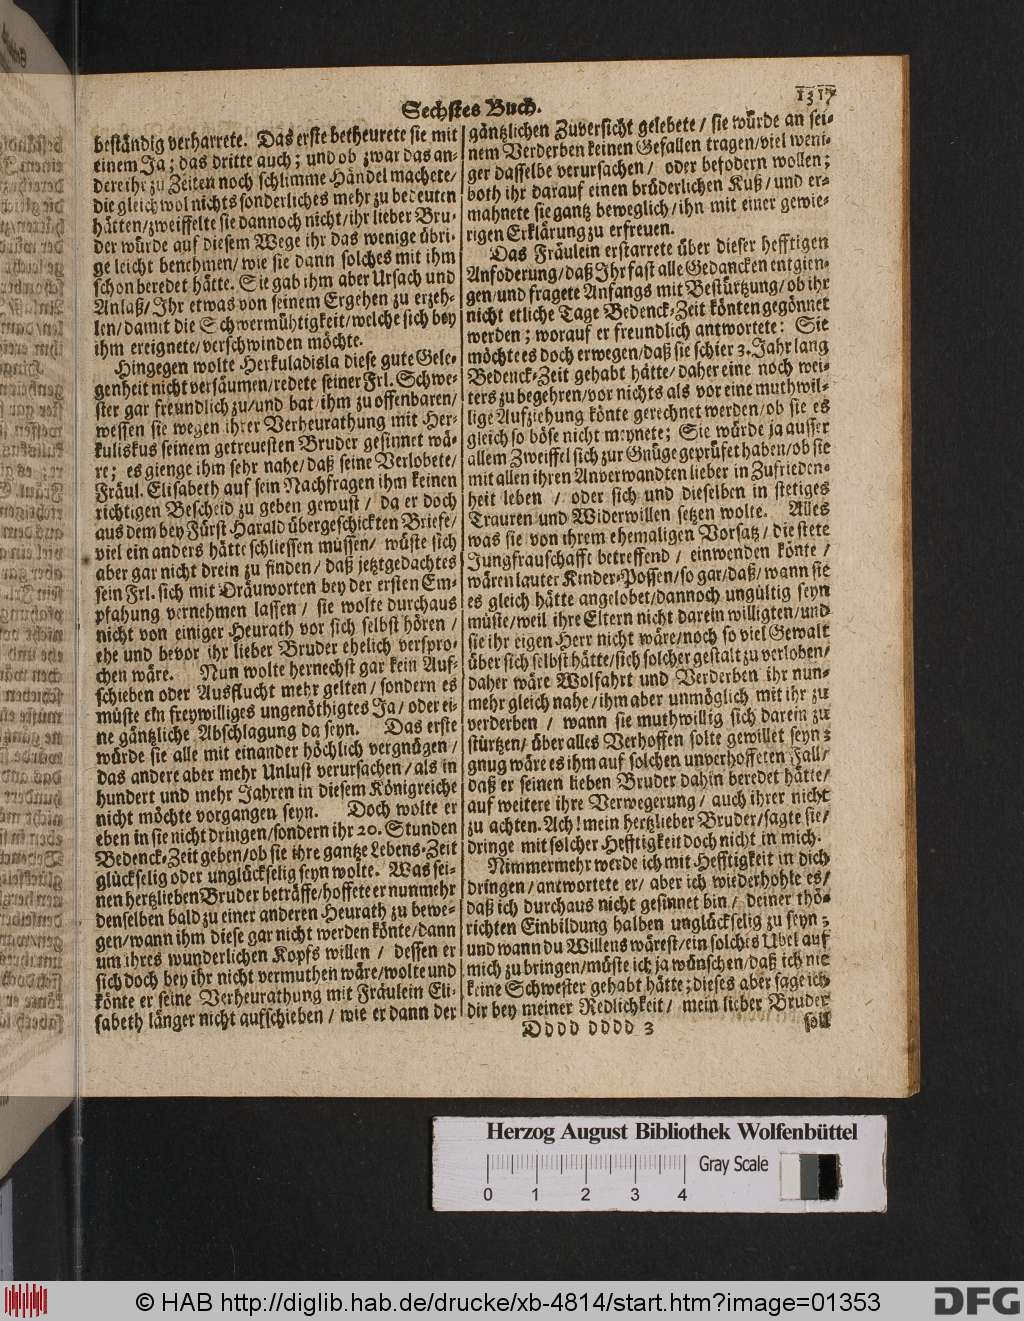 Sechstes Buch.
1317
beständig verharrete. Das erste betheurete sie mit
einem Ja; das dritte auch; und ob zwar das an-
dere ihr zu Zeiten noch schlimme Händel machete/
die gleich wol nichts sonderliches mehr zu bedeuten
hätten/zweiffelte sie dannoch nicht/ihr lieber Bru-
der würde auf diesem Wege ihr das wenige übri-
ge leicht benehmen/wie sie dann solches mit ihm
schon beredet hätte. Sie gab ihm aber Ursach und
Anlaß/Ihr etwas von seinem Ergehen zu erzeh-
len/damit die Schwermühtigkeit/welche sich bey
ihm ereignete/verschwinden möchte.
Hingegen wolte Herkuladisla diese gute Gele-
genheit nicht versäumen/redete seiner Frl. Schwe-
ster gar freundlich zu/und bat/ihm zu offenbaren/
wessen sie wegen ihrer Verheurathung mit Her-
kuliskus seinem getreuesten Bruder gesinnet wä-
re; es gienge ihm sehr nahe/daß seine Verlobete/
Fräul. Elisabeth auf sein Nachfragen ihm keinen
richtigen Bescheid zu geben gewust/ da er doch
aus dem bey Fürst Harald übergeschickten Briefe/
viel ein anders hätte schliessen müssen/ wüste sich
aber gar nicht drein zu finden/ daß jetztgedachtes
sein Frl. sich mit Dräuworten bey der ersten Em-
pfahung vernehmen lassen/ sie wolte durchaus
nicht von einiger Heurath vor sich selbst hören/
ehe und bevor ihr lieber Bruder ehelich verspro-
chen wäre. Nun wolte hernechst gar kein Auf-
schieben oder Ausflucht mehr gelten/sondern es
müste ein freywilliges ungenöthigtes Ja/ oder ei-
ne gäntzliche Abschlagung da seyn. Das erste
würde sie alle mit einander höchlich vergnügen/
das andere aber mehr Unlust verursachen/als in
hundert und mehr Jahren in diesem Königreiche
nicht möchte vorgangen seyn. Doch wolte er
eben in sie nicht dringen/sondern ihr 20. Stunden
Bedenck-Zeit geben/ob sie ihre gantze Lebens-Zeit
glückselig oder unglückselig seyn wolte. Was sei-
nen hertzlieben Bruder beträffe/hoffete er nunmehr
denselben bald zu einer anderen Heurath zu bewe-
gen/wann ihm diese gar nicht werden könte/dann
um ihres wunderlichen Kopfs willen/ dessen er
sich doch bey ihr nicht vermuthen wäre/wolte und
könte er seine Verheurathung mit Fräulein Eli-
sabeth länger nicht aufschieben/ wie er dann der
gäntzlichen Zuversicht gelebete/ sie würde an sei-
nem Verderben keinen Gefallen tragen/viel weni-
ger dasselbe verursachen/ oder befodern wollen;
both ihr darauf einen brüderlichen Kuß/und er-
mahnete sie gantz beweglich/ihn mit einer gewie-
rigen Erklärung zu erfreuen.
Das Fräulein erstarrete über dieser hefftigen
Anfoderung/daß Ihr fast alle Gedancken entgien-
gen/und fragete Anfangs mit Bestürtzung/ob ihr
nicht etliche Tage Bedenck-Zeit könten gegönnet
werden; worauf er freundlich antwortete: Sie
möchte es doch erwegen/daß sie schier 3. Jahr lang
Bedenck-Zeit gehabt hätte/daher eine noch wei-
ters zu begehren/vor nichts als vor eine muthwil-
lige Aufziehung könte gerechnet werden/ob sie es
gleich so böse nicht meynete; Sie würde ja ausser
allem Zweiffel sich zur Gnüge geprüfet haben/ob sie
mit allen ihren Anverwandten lieber in Zufrieden-
heit leben / oder sich und dieselben in stetiges
Trauren und Widerwillen setzen wolte. Alles
was sie von ihrem ehemaligen Vorsatz/ die stete
Jungfrauschafft betreffend/ einwenden könte/
wären lauter Kinder-Possen/so gar/daß/wann sie
es gleich hätte angelobet/dannoch ungültig seyn
müste/weil ihre Eltern nicht darein willigten/und
sie ihr eigen Herr nicht wäre/noch so viel Gewalt
über sich selbst hätte/sich solcher gestalt zu verloben/
daher wäre Wolfahrt und Verderben ihr nun-
mehr gleich nahe/ihm aber unmöglich mit ihr zu
verderben/ wann sie muthwillig sich darein zu
stürtzen/über alles Verhoffen solte gewillet seyn;
gnug wäre es ihm auf solchen unverhoffeten Fall/
daß er seinen lieben Bruder dahin beredet hätte/
auf weitere ihre Verwegerung/ auch ihrer nicht
zu achten. Ach! mein hertzlieber Bruder/sagte sie/
dringe mit solcher Hefftigkeit doch nicht in mich.
Nimmermehr werde ich mit Hefftigkeit in dich
dringen/antwortete er/ aber ich wiederhohle es/
daß ich durchaus nicht gesinnet bin/ deiner thö-
richten Einbildung halben unglückselig zu seyn;
und wann du Willens wärest/ein solches Ubel auf
mich zu bringen/müste ich ja wünschen/daß ich nie
keine Schwester gehabt hätte; dieses aber sage ich
dir bey meiner Redlichkeit/ mein lieber Bruder
Dddd dddd 3
soll
Herzog August Bibliothek Wolfenbüttel
Gray Scale
0 1 2 3 4
© HAB http://diglib.hab.de/drucke/xb-4814/start.htm?image=01353
DFG